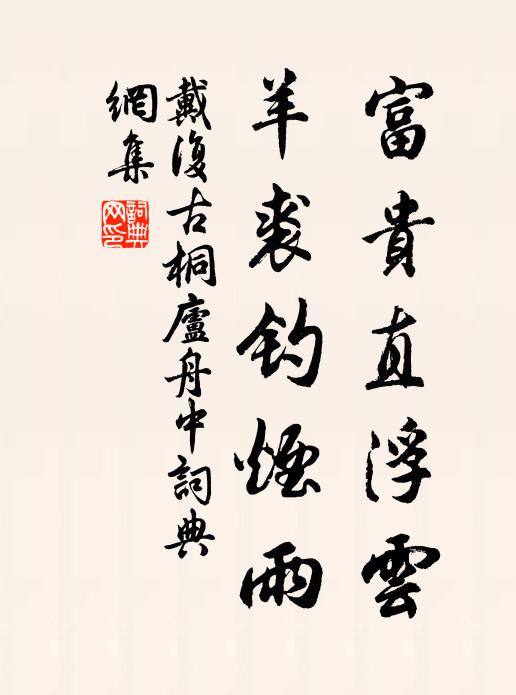 富貴直浮雲
羊裘釣煙雨
戴復古桐廬舟中詞典
網集
詞典網印